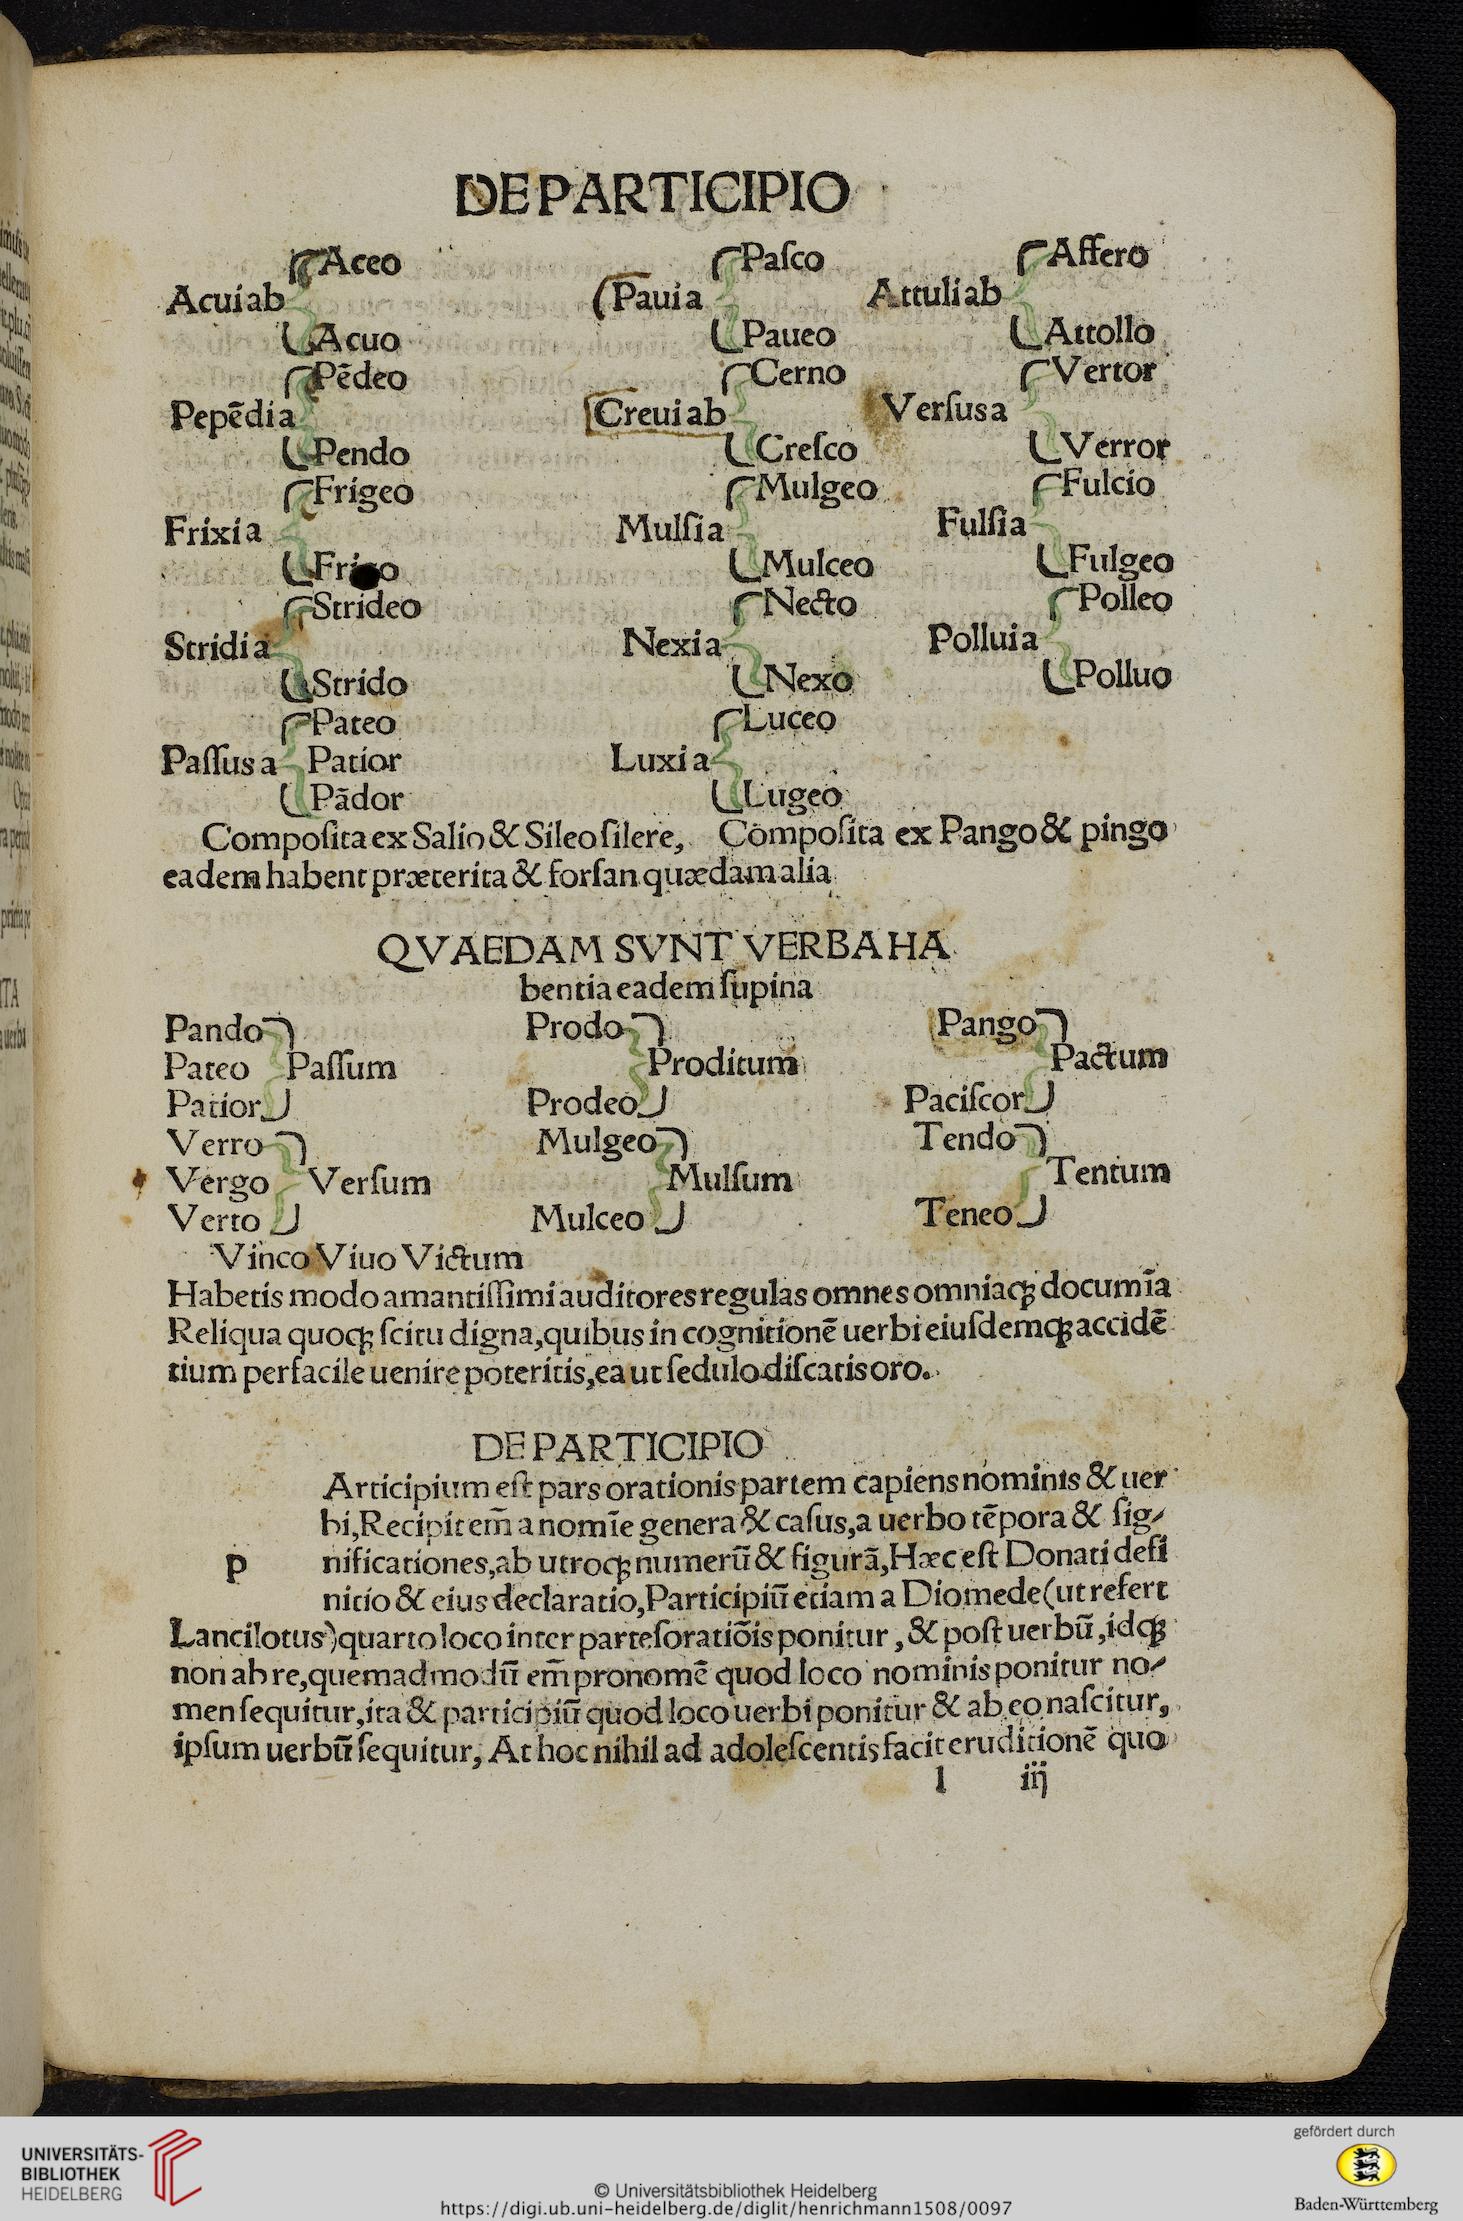 DE PARTICIPIO
Aceo
Acui ab
Acuo
Pēdeo
Pepēdi a
Pendo
Frigeo
Frixi a
Strideo
Stridi a
Strido
Pateo
Passus a Patior
Pādor
Pasco
Paui a
Paueo
Cerno
Creui ab
Cresco
Mulgeo
Mulsi a
Mulceo
Necto
Nexi a
Nexo
Luceo
Luxi a
Lugeo
Affero
Attuli ab
Attollo
Vertor
Versus a
Verror
Fulcio
Fulsi a
Fulgeo
Polleo
Pollui a
Polluo
Compoſita ex Salio & Sileo ſilere, Compoſita ex Pango & pingo
eadem habent præterita & forſan quædam alia
QVAEDAM SVNT VERBA HA
bentia eadem ſupina
Pando
Pateo Paſſum
Patior
Prodo
Proditum
Prodeo
Pango
Pactum
Paciſcor
Verro
Vergo Verſum
Verto
Mulgeo
Mulſum
Mulceo
Tendo
Tentum
Teneo
Vinco Viuo Victum
Habetis modo amantiſſimi auditores regulas omnes omniaqꝫ documīa
Reliqua quoqꝫ ſcitu digna, quibus in cognitionē uerbi eiuſdemqꝫ accidē
tium perfacile uenire poteritis, ea ut ſedulo diſcatis oro.
DE PARTICIPIO
Articipium eſt pars orationis partem capiens nominis & uer
bi, Recipit em̄ a nomīe genera & caſus, a uerbo tēpora & ſig⸗
p nificationes, ab utroqꝫ numerū & figurā, Hæc eſt Donati defi
nitio & eius declaratio, Participiū etiam a Diomede (ut refert
Lancilotus) quarto loco inter parteſ oratiōis ponitur, & poſt uerbū, idqꝫ
non ab re, quemadmodū em̄ pronomē quod loco nominis ponitur no⸗
men ſequitur, ita & participiū quod loco uerbi ponitur & ab eo naſcitur,
ipſum uerbū ſequitur, At hoc nihil ad adoleſcentis facit eruditionē quo
l iij
UNIVERSITÄTS-
BIBLIOTHEK
HEIDELBERG
© Universitätsbibliothek Heidelberg
https://digi.ub.uni-heidelberg.de/diglit/henrichmann1508/0097
gefördert durch
Baden-Württemberg